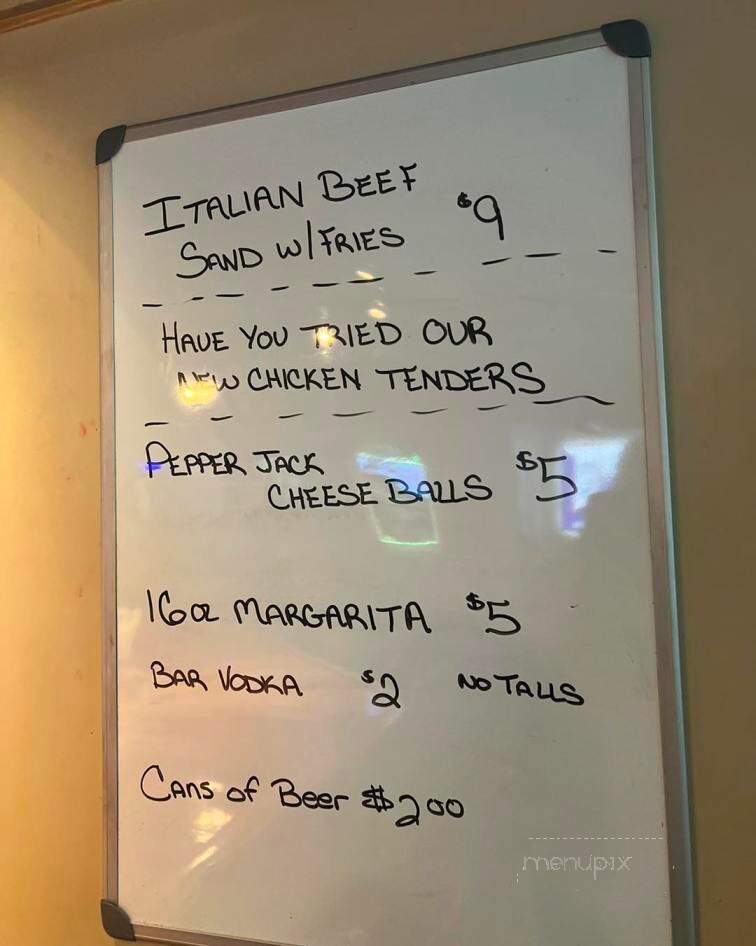 ITALIAN BEEF
SAND W/FRIES $9
HAVE YOU TRIED OUR
NEW CHICKEN TENDERS
PEPPER JACK
CHEESE BALLS $5
16oz MARGARITA $5
BAR VODKA $2 NO TALLS
CANS of BEER $2 00
menupix